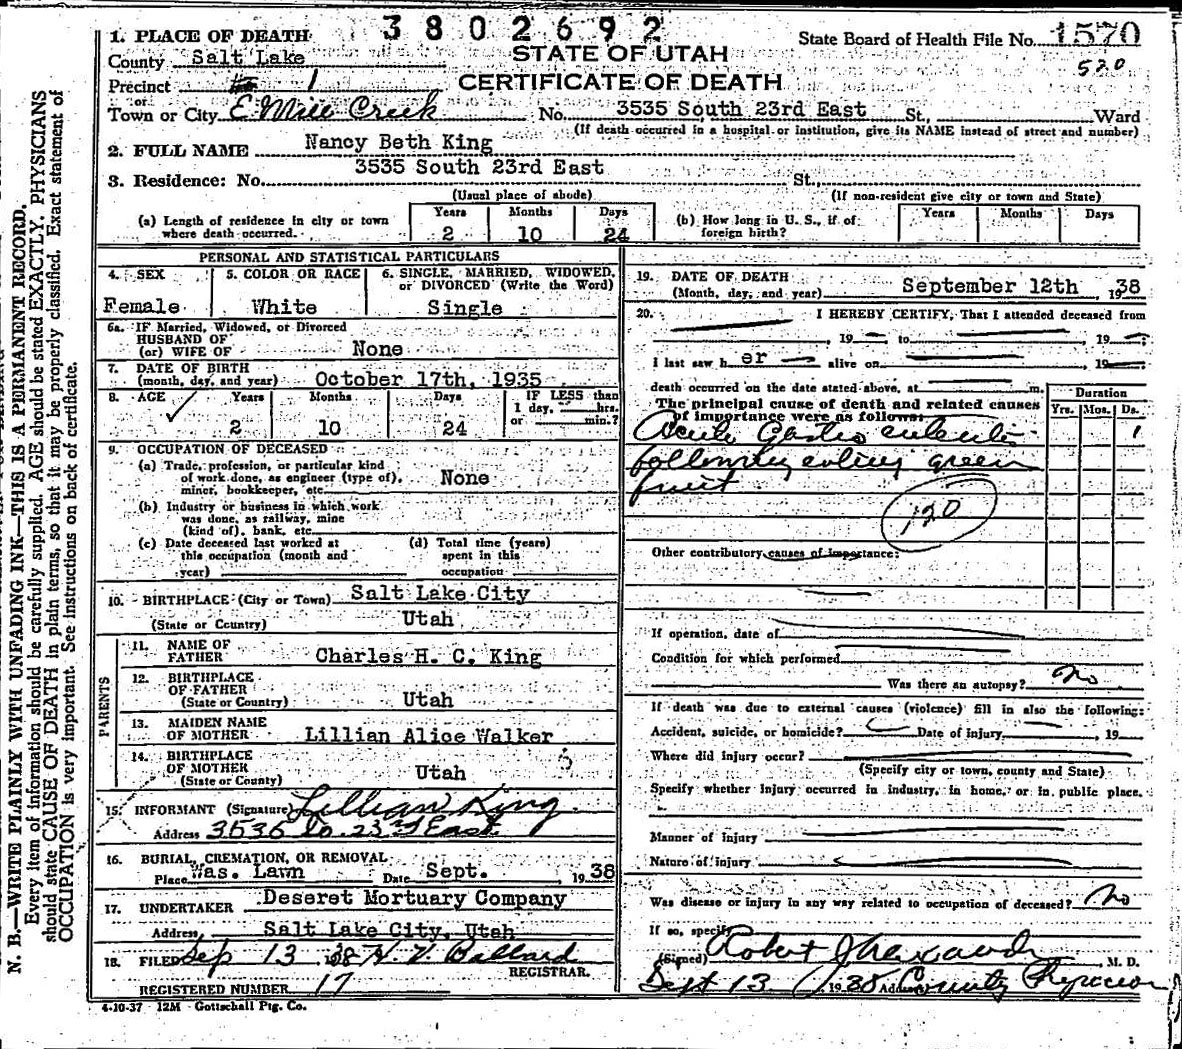 3802692
1. PLACE OF DEATH
STATE OF UTAH
State Board of Health File No. 1570
County Salt Lake
CERTIFICATE OF DEATH
520
Precinct 1
or
Town or City E. Mill Creek No. 3535 South 23rd East St., Ward
(If death occurred in a hospital or institution, give its NAME instead of street and number)
2. FULL NAME Nancy Beth King
3. Residence: No. 3535 South 23rd East St.,
(Usual place of abode) (If non-resident give city or town and State)
(a) Length of residence in city or town where death occurred. Years 2 Months 10 Days 24
(b) How long in U. S., if of foreign birth? Years Months Days
PERSONAL AND STATISTICAL PARTICULARS
4. SEX Female
5. COLOR OR RACE White
6. SINGLE, MARRIED, WIDOWED, or DIVORCED (Write the Word) Single
6a. IF Married, Widowed, or Divorced
HUSBAND OF
(or) WIFE OF None
7. DATE OF BIRTH
(month, day, and year) October 17th, 1935
8. AGE Years 2 Months 10 Days 24
IF LESS than
1 day, hrs.
or min.?
9. OCCUPATION OF DECEASED
(a) Trade, profession, or particular kind
of work done, as engineer (type of),
miner, bookkeeper, etc. None
(b) Industry or business in which work
was done, as railway, mine
(kind of), bank, etc.
(c) Date deceased last worked at
this occupation (month and
year)
(d) Total time (years)
spent in this
occupation
10. BIRTHPLACE (City or Town) Salt Lake City
(State or Country) Utah
PARENTS
11. NAME OF
FATHER Charles H. C. King
12. BIRTHPLACE
OF FATHER
(State or County) Utah
13. MAIDEN NAME
OF MOTHER Lillian Alice Walker
14. BIRTHPLACE
OF MOTHER
(State or County) Utah
15. INFORMANT (Signature) Lillian King
Address 3535 So. 23rd East
16. BURIAL, CREMATION, OR REMOVAL
Place Was. Lawn Date Sept. 1938
17. UNDERTAKER Deseret Mortuary Company
Address Salt Lake City, Utah
18. FILED Sep 13 1938 H. V. Ballard
REGISTRAR.
REGISTERED NUMBER 17
4-10-37 - 12M - Gottschall Ptg. Co.
19. DATE OF DEATH
(Month, day, and year) September 12th 1938
20. I HEREBY CERTIFY, That I attended deceased from
, 19 to , 19
I last saw h er alive on , 19
death occurred on the date stated above, at m.
The principal cause of death and related causes
of importance were as follows:
Duration
Yrs. Mos. Ds.
Acute Gastro enteritis 1
following eating green
fruit
120
Other contributory causes of importance:
If operation, date of
Condition for which performed
Was there an autopsy? No
If death was due to external causes (violence) fill in also the following:
Accident, suicide, or homicide? Date of injury , 19
Where did injury occur?
(Specify city or town, county and State)
Specify whether injury occurred in industry, in home, or in public place.
Manner of injury
Nature of injury
Was disease or injury in any way related to occupation of deceased? No
If so, specify
(Signed) Robert J Alexander M. D.
Sept 13 1938 Address County Physician
N. B.—WRITE PLAINLY WITH UNFADING INK—THIS IS A PERMANENT RECORD.
Every item of information should be carefully supplied. AGE should be stated EXACTLY. PHYSICIANS
should state CAUSE OF DEATH in plain terms, so that it may be properly classified. Exact statement of
OCCUPATION is very important. See instructions on back of certificate.